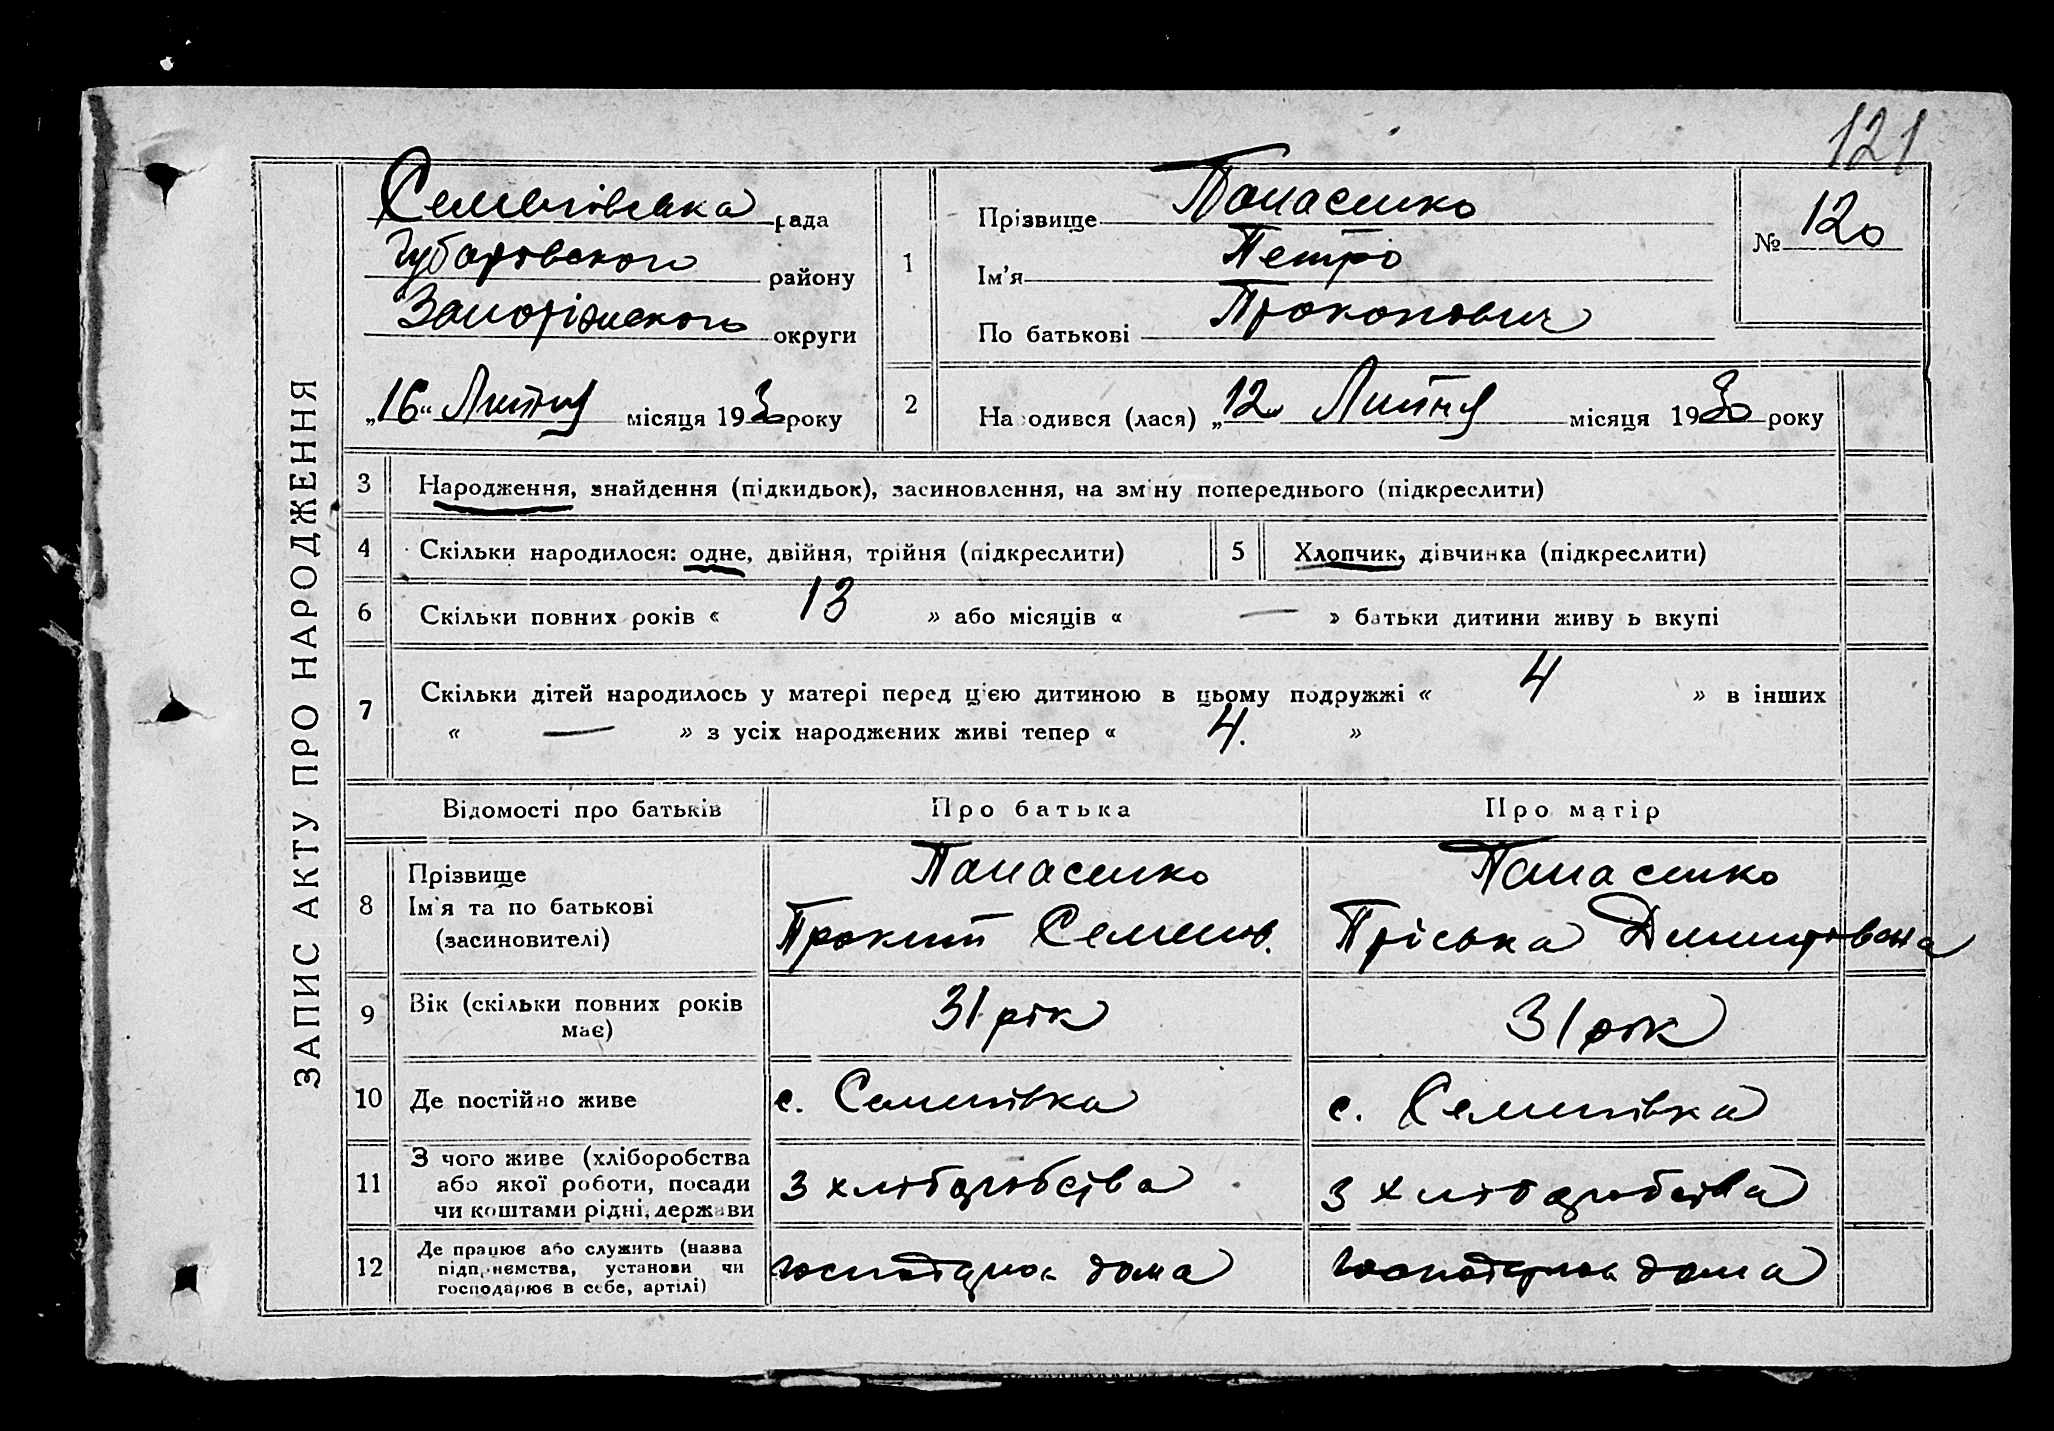 121
ЗАПИС АКТУ ПРО НАРОДЖЕННЯ
Семенівська рада
Губарівського району
Запоріжського округи
„16“ Липня місяця 1930 року
1
Прізвище Панасенко
Ім'я Петро
По батькові Прокопович
№ 120
2 Народився (лася) „12“ Липня місяця 1930 року
3 Народження, знайдення (підкидьок), засиновлення, на зміну попереднього (підкреслити)
4 Скільки народилося: одне, двійня, трійня (підкреслити)
5 Хлопчик, дівчинка (підкреслити)
6 Скільки повних років « 13 » або місяців « — » батьки дитини живуть вкупі
7 Скільки дітей народилось у матері перед цією дитиною в цьому подружжі « 4 » в інших
« — » з усіх народжених живі тепер « 4. »
Відомості про батьків Про батька Про матір
8 Прізвище Панасенко Панасенко
Ім'я та по батькові Прокіп Семенов. Пріська Дмитрована
(засиновителі)
9 Вік (скільки повних років має) 31 рік 31 рік
10 Де постійно живе с. Семенівка с. Семенівка
11 З чого живе (хліборобства
або якої роботи, посади з хліборобства з хліборобства
чи коштами рідні, держави
12 Де працює або служить (назва
підприємства, установи чи дома дома
господарює в себе, артілі)